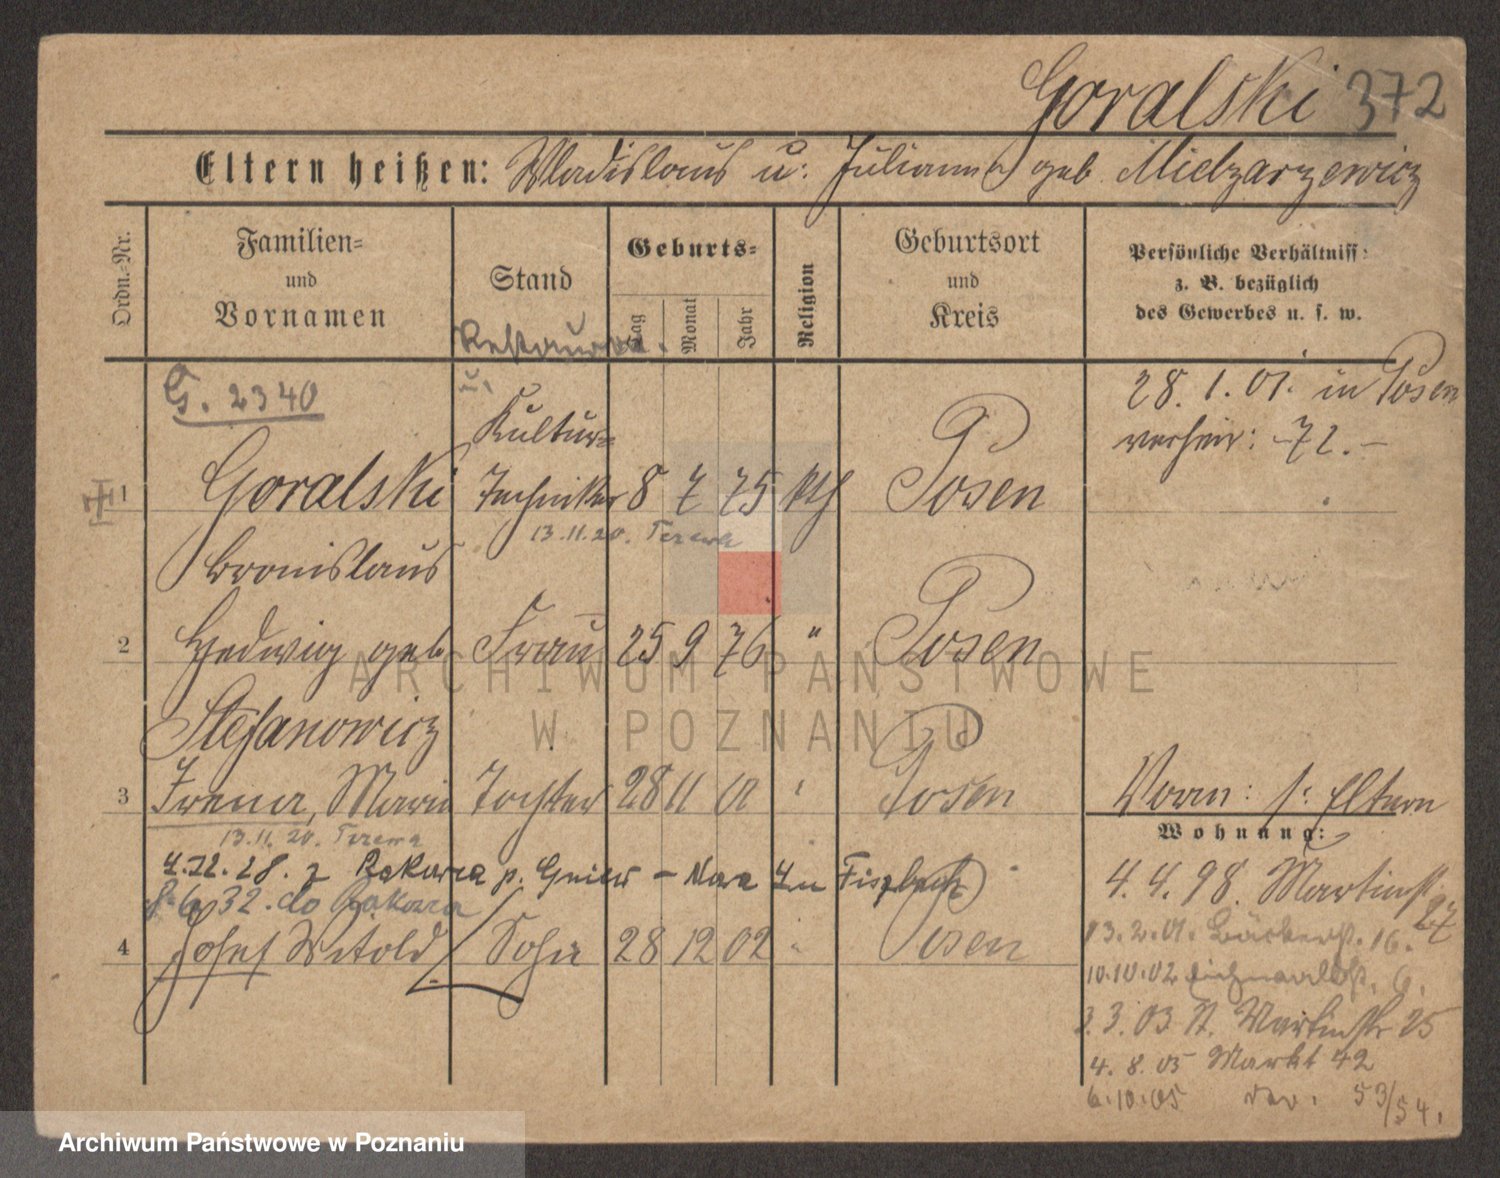 Goralski 372
Eltern heißen: Wladislaus u. Julianna geb Mielzarzewicz
Ordn.-Nr.
Familien-
und
Vornamen
Stand
Geburts-
Tag
Monat
Jahr
Religion
Geburtsort
und
Kreis
Persönliche Verhältniss:
z. B. bezüglich
des Gewerbes u. s. w.
Restaura.
u.
G. 2340
28. 1. 01. in Posen
Kultur-
verheir: -72.-
1 Goralski Techniker 8 7 75 kth Posen
13.11.20.
Bronislaus
2 Hedwig geb Frau 25 9 76 " Posen
Stefanowicz
3 Irena, Maria Tochter 28 11 01 " Posen
Vorm: s. Eltern
13.11.20.
Wohnung:
4.12.28. z Rakowca p. Gniew - Nara
6 32. do Rakowca
4 Josef Witold Sohn 28 12 02 " Posen
4. 4. 98. Martinst. 27
13.2.01. 16.
10.10.02 6.
3.3.03 St. Martinstr 25
4. 8. 05 Markt 42
6.10.05 53/54.
ARCHIWUM PAŃSTWOWE
W POZNANIU
Archiwum Państwowe w Poznaniu